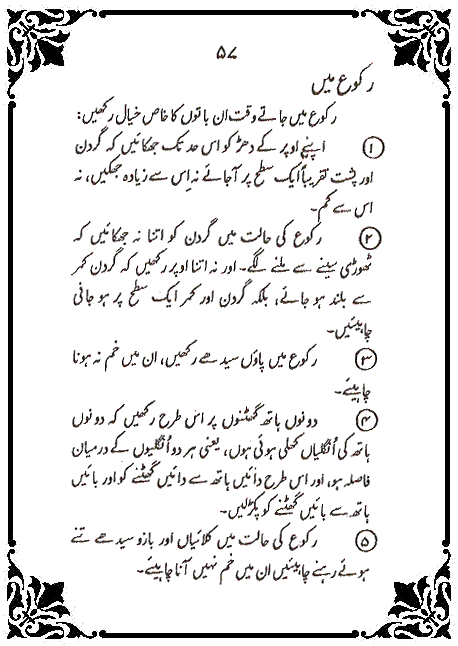 ۵۷
رکوع میں
رکوع میں جاتے وقت ان باتوں کا خاص خیال رکھیں:
① اپنے اوپر کے دھڑ کو اس حد تک جھکائیں کہ گردن
اور پشت تقریباً ایک سطح پر آجائے نہ اِس سے زیادہ جھکیں، نہ
اس سے کم۔
② رکوع کی حالت میں گردن کو اتنا نہ جھکائیں کہ
ٹھوڑی سینے سے ملنے لگے۔ اور نہ اتنا اوپر رکھیں کہ گردن کمر
سے بلند ہو جائے، بلکہ گردن اور کمر ایک سطح پر ہو جانی
چاہیئیں۔
③ رکوع میں پاؤں سیدھے رکھیں، ان میں خم نہ ہونا
چاہیئے۔
④ دونوں ہاتھ گھٹنوں پر اس طرح رکھیں کہ دونوں
ہاتھ کی اُنگلیاں کھلی ہوئی ہوں، یعنی ہر دو اُنگلیوں کے درمیان
فاصلہ ہو، اور اس طرح دائیں ہاتھ سے دائیں گھٹنے کو اور بائیں
ہاتھ سے بائیں گھٹنے کو پکڑ لیں۔
⑤ رکوع کی حالت میں کلائیاں اور بازو سیدھے تنے
ہوئے رہنے چاہیئیں ان میں خم نہیں آنا چاہیئے۔